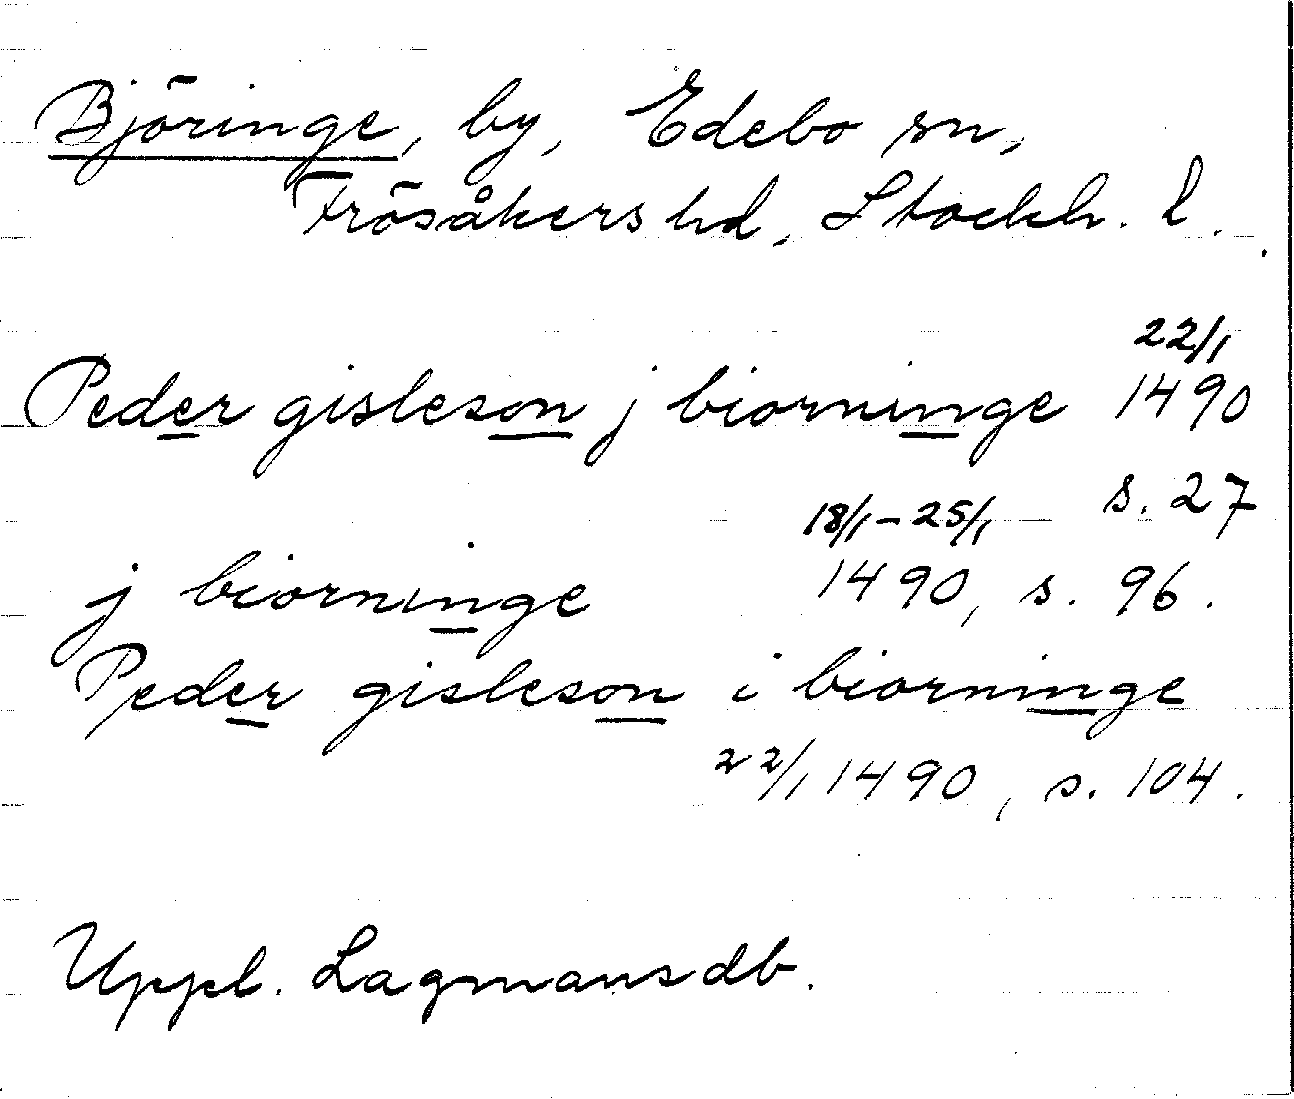 Björinge, by, Edebo sn,
Frösåkers hd, Stockh. l.
22/1
Peder gisleson j biorninge 1490
s. 27
18/1-25/1
j biorninge 1490, s. 96.
Peder gisleson i biorninge
22/1 1490, s. 104.
Uppl. Lagmansdb.